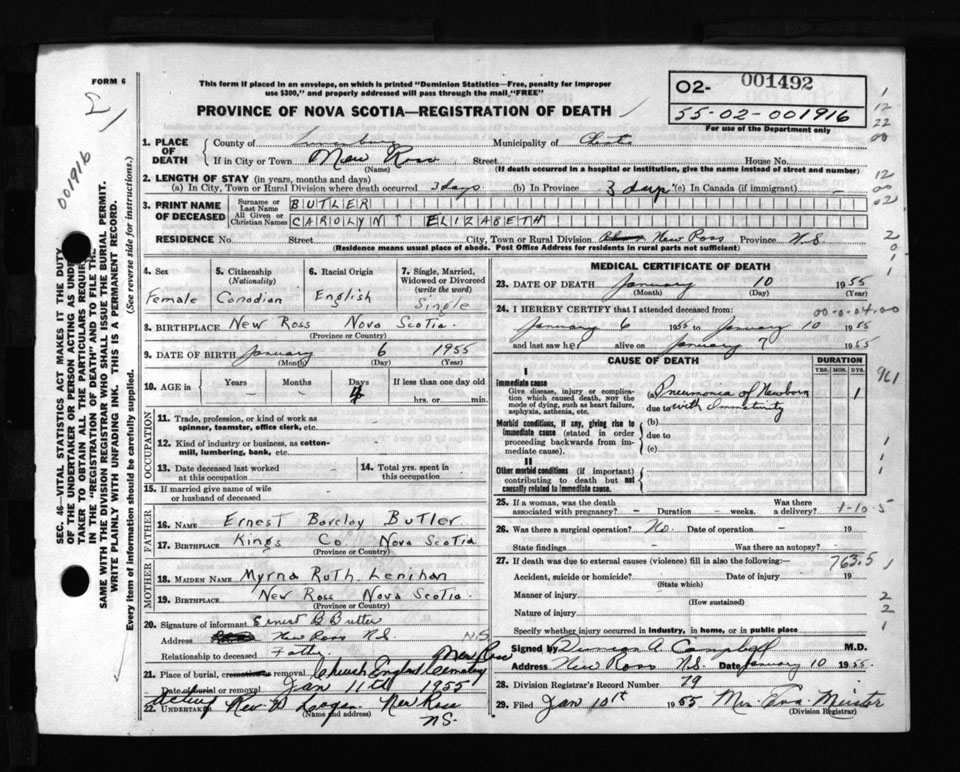 FORM 6
This form if placed in an envelope, on which is printed "Dominion Statistics—Free, penalty for improper
use $300," and properly addressed will pass through the mail "FREE"
PROVINCE OF NOVA SCOTIA—REGISTRATION OF DEATH
02- 001492
55-02-001916
For use of the Department only
001916
SEC. 46—VITAL STATISTICS ACT MAKES IT THE DUTY
OF THE UNDERTAKER OR PERSON ACTING AS UNDER
TAKER TO OBTAIN ALL THE PARTICULARS REQUIRE
IN THE "REGISTRATION OF DEATH" AND TO FILE THE
SAME WITH THE DIVISION REGISTRAR WHO SHALL ISSUE THE BURIAL PERMIT.
WRITE PLAINLY WITH UNFADING INK. THIS IS A PERMANENT RECORD.
Every item of information should be carefully supplied. (See reverse side for instructions.)
1. PLACE OF DEATH
County of Lunenburg Municipality of Chester
If in City or Town New Ross Street House No.
(Name) (If death occurred in a hospital or institution, give the name instead of street and number)
2. LENGTH OF STAY (in years, months and days)
(a) In City, Town or Rural Division where death occurred 3 days (b) In Province 3 days (c) In Canada (if immigrant) —
3. PRINT NAME OF DECEASED
Surname or Last Name BUTLER
All Given or Christian Names CAROLYN ELIZABETH
RESIDENCE No. Street City, Town or Rural Division New Ross Province N.S.
(Residence means usual place of abode. Post Office Address for residents in rural parts not sufficient)
4. Sex Female
5. Citizenship (Nationality) Canadian
6. Racial Origin English
7. Single, Married, Widowed or Divorced (write the word) Single
8. BIRTHPLACE New Ross Nova Scotia.
(Province or Country)
9. DATE OF BIRTH January 6 1955
(Month) (Day) (Year)
10. AGE in Years Months Days 4 If less than one day old
hrs. or min.
OCCUPATION
11. Trade, profession, or kind of work as
spinner, teamster, office clerk, etc.
12. Kind of industry or business, as cotton-
mill, lumbering, bank, etc.
13. Date deceased last worked
at this occupation
14. Total yrs. spent in
this occupation
15. If married give name of wife
or husband of deceased
FATHER
16. NAME Ernest Barclay Butler
17. BIRTHPLACE Kings Co. Nova Scotia
(Province or Country)
MOTHER
18. MAIDEN NAME Myrna Ruth Lenihan
19. BIRTHPLACE New Ross Nova Scotia.
(Province or Country)
20. Signature of informant Ernest B Butler
Address New Ross N.S. N.S
Relationship to deceased Father
21. Place of burial, cremation or removal Church England Cemetery New Ross
Date of burial or removal Jan 11th 1955
22. UNDERTAKER Acting Rev. Logan New Ross
(Name and address) N.S.
MEDICAL CERTIFICATE OF DEATH
23. DATE OF DEATH January 10 1955
(Month) (Day) (Year)
24. I HEREBY CERTIFY that I attended deceased from: 00-0-04-00
January 6 1955 to January 10 1955
and last saw her alive on January 7 1955
CAUSE OF DEATH DURATION
YRS. MOS. DYS.
I
Immediate cause
Give disease, injury or complication
which caused death, NOT the
mode of dying, such as heart failure,
asphyxia, asthenia, etc.
(a) Pneumonia of Newborn 1
due to with Immaturity
Morbid conditions, if any, giving rise to
immediate cause (stated in order
proceeding backwards from immediate cause).
(b)
due to
(c)
II
Other morbid conditions (if important)
contributing to death but not
causally related to immediate cause.
25. If a woman, was the death
associated with pregnancy? – Duration – weeks. Was there
a delivery? 1-10-5
26. Was there a surgical operation? No. Date of operation – 19
State findings – Was there an autopsy? -
27. If death was due to external causes (violence) fill in also the following:— 763.5
Accident, suicide or homicide? Date of injury 19
(State which)
Manner of injury
(How sustained)
Nature of injury
Specify whether injury occurred in industry, in home, or in public place
Signed by Duncan A. Campbell M.D.
Address New Ross N.S. Date January 10 1955.
28. Division Registrar's Record Number 79
29. Filed Jan 10th 1955 Mrs. Eva Meister
(Division Registrar)
1
12
22
00
12
00
02
2
0
1
961
1
1
1
1
2
2
1